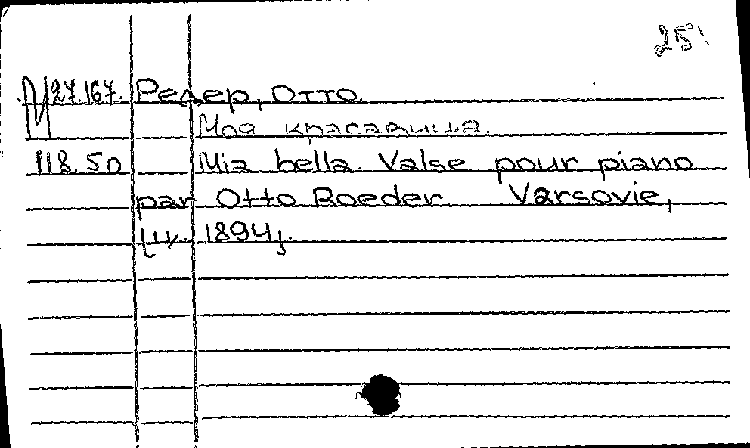 25
М27.167. Редер, Отто.
Моя красавица.
118.50 Mia bella. Valse pour piano
par Otto Roeder. Varsovie,
[ц. 1894].